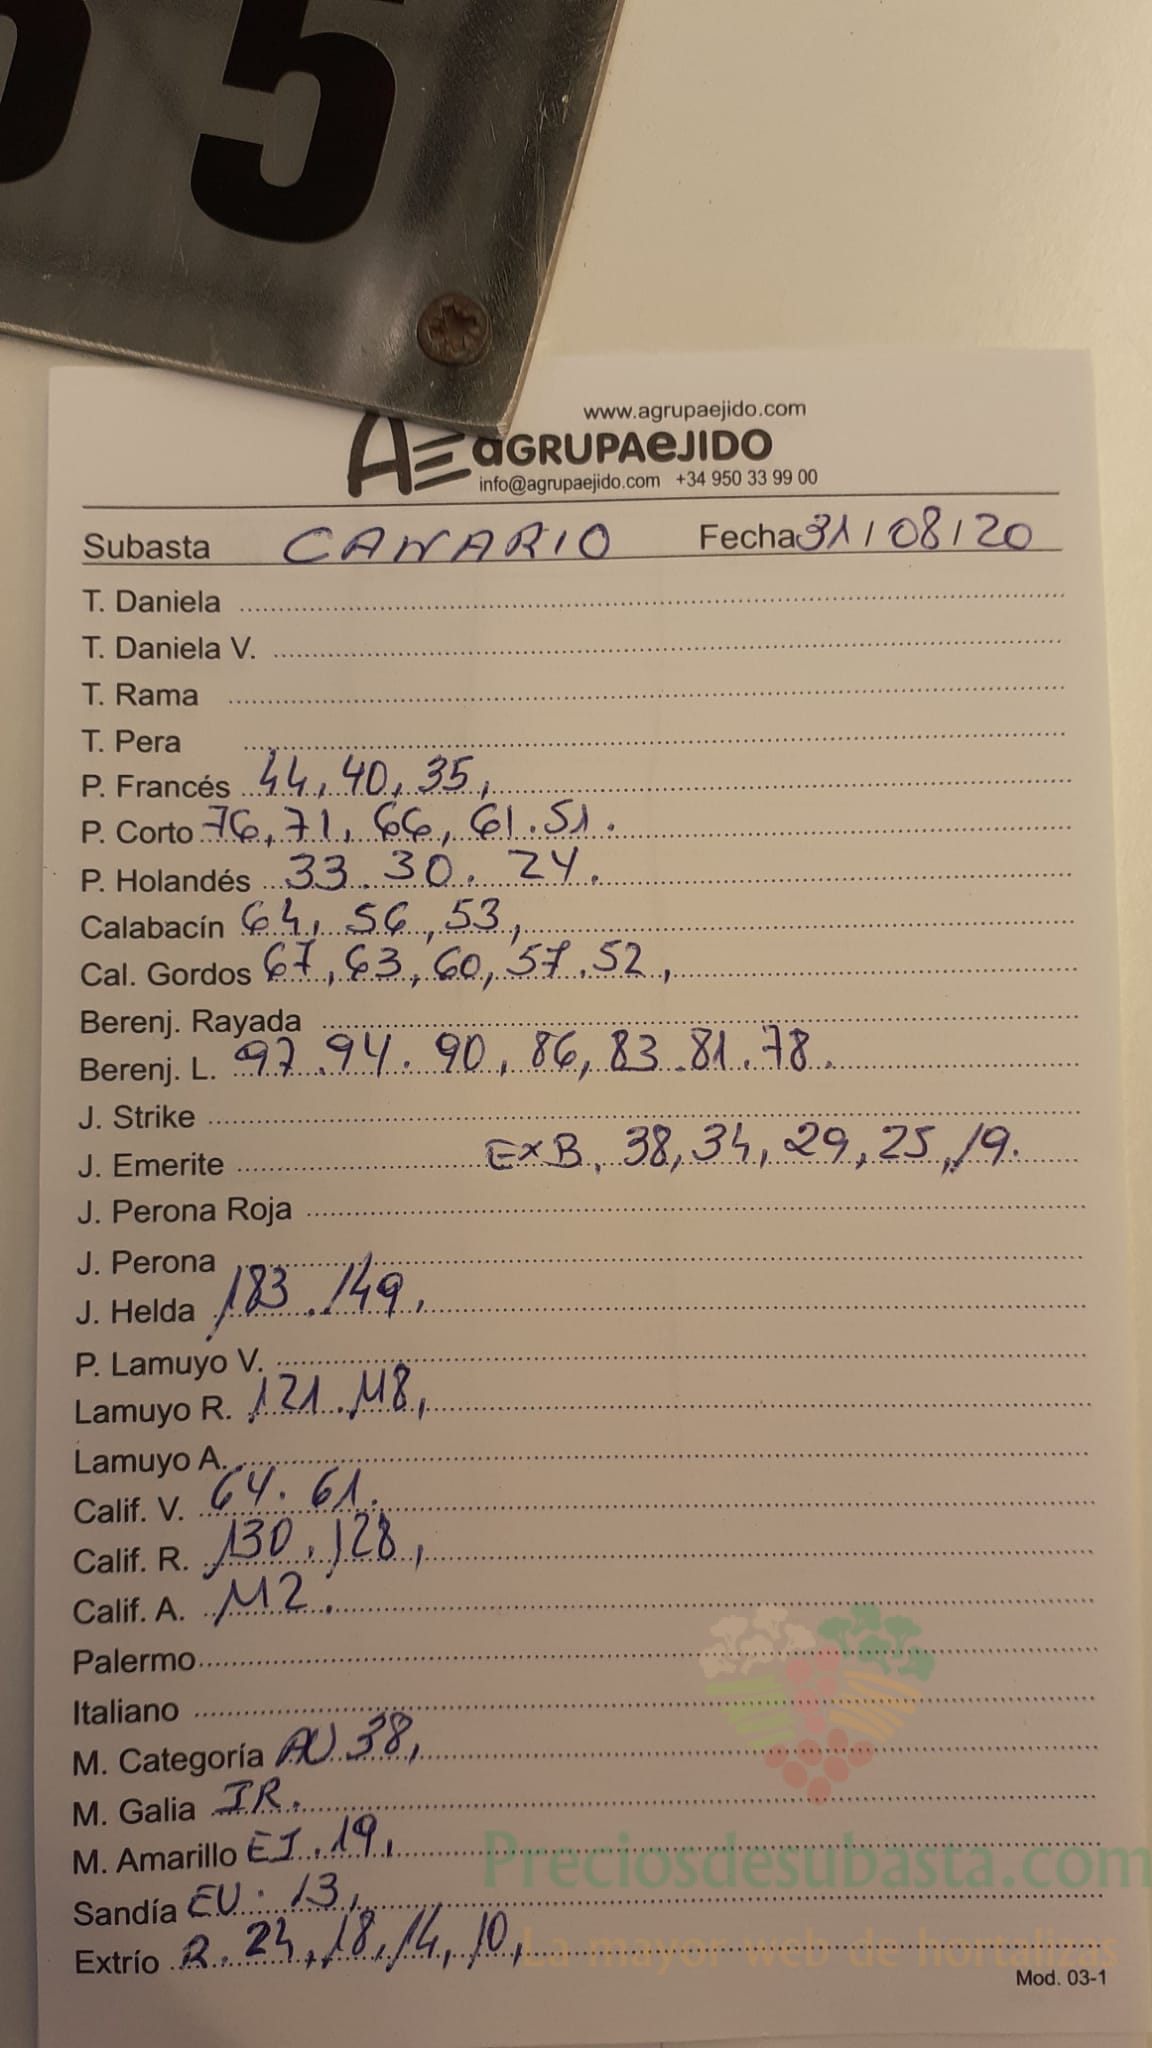 5
www.agrupaejido.com
AE aGRUPAeJIDO
info@agrupaejido.com +34 950 33 99 00
Subasta CANARIO Fecha 31/08/20
T. Daniela
T. Daniela V.
T. Rama
T. Pera
P. Francés 44, 40, 35,
P. Corto 76, 71, 66, 61. 51.
P. Holandés 33. 30. 24.
Calabacín 64, 56, 53,
Cal. Gordos 67, 63, 60, 57. 52,
Berenj. Rayada
Berenj. L. 97. 94. 90, 86, 83. 81. 78.
J. Strike
J. Emerite ExB, 38, 34, 29, 25, 19.
J. Perona Roja
J. Perona
J. Helda 183. 149,
P. Lamuyo V.
Lamuyo R. 121. 118,
Lamuyo A.
Calif. V. 64. 61.
Calif. R. 130, 128,
Calif. A. 112.
Palermo
Italiano
M. Categoría AU 38,
M. Galia IR.
M. Amarillo EJ. 19,
Sandía EU. 13,
Extrío R. 24, 18, 14, 10,
Preciosdesubasta.com
La mayor web de hortalizas
Mod. 03-1